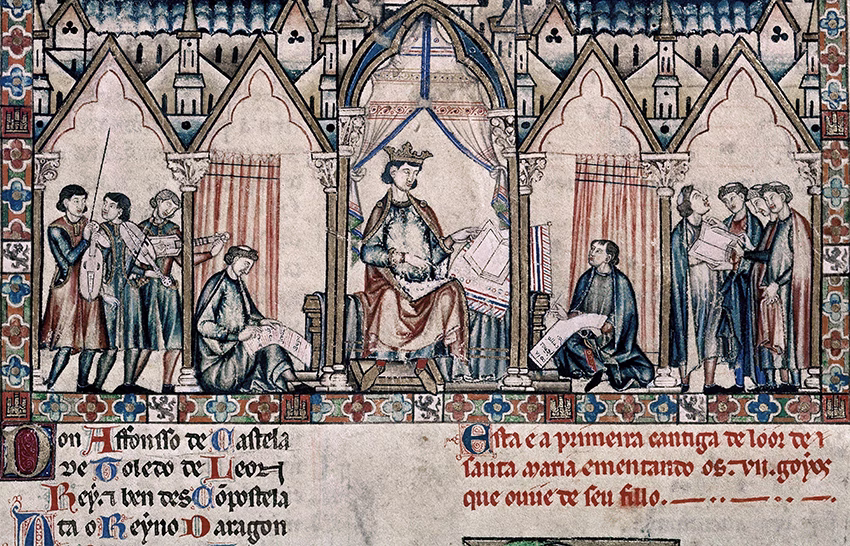 Don Affonsso de Castela
de Toledo de Leon
Rey ⁊ ben des Cōpostela
Ata o Reyno Daragon
Esta e a primeira cantiga de loor de
santa maria ementando os .vii. goyos
que ouue de seu fillo.